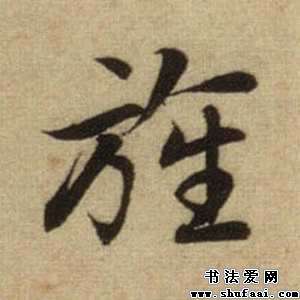 旌
书法爱网
www.shufaai.com